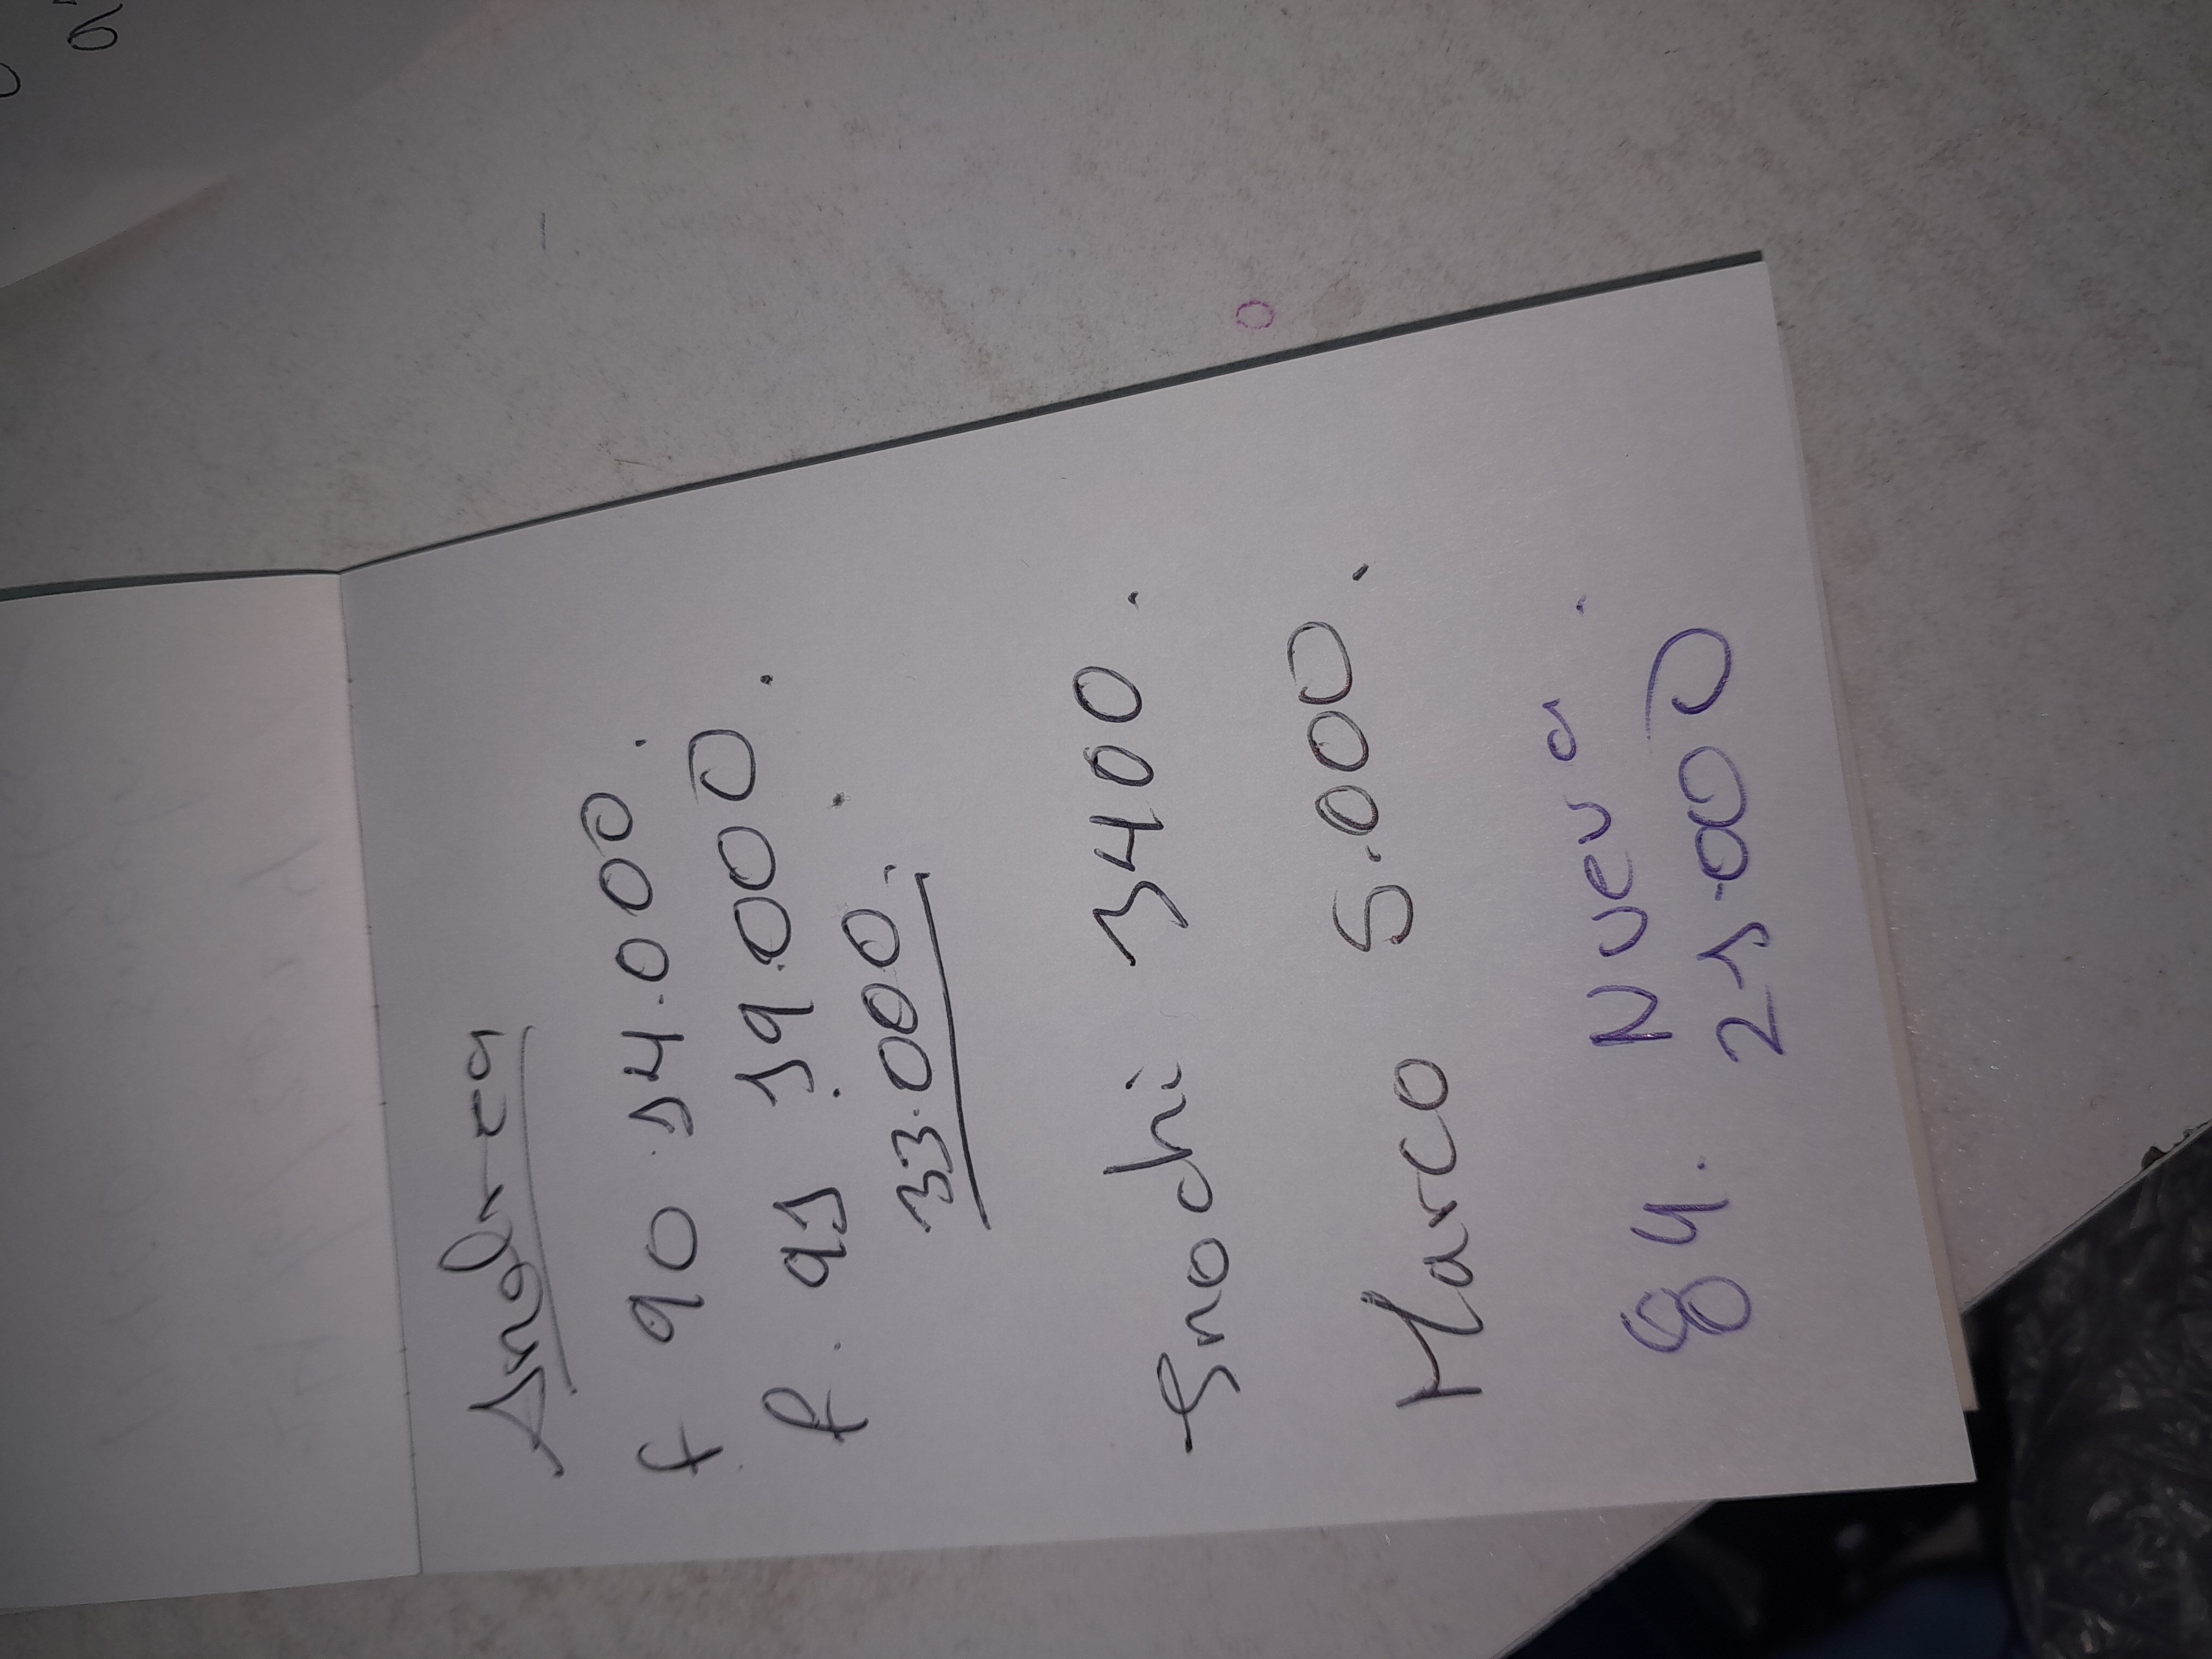 Andrea
f 90 14.000.
f. 91 19.000.
33.000.
Snochi 3400.
Marco 5.000.
84. Nueva.
21.000